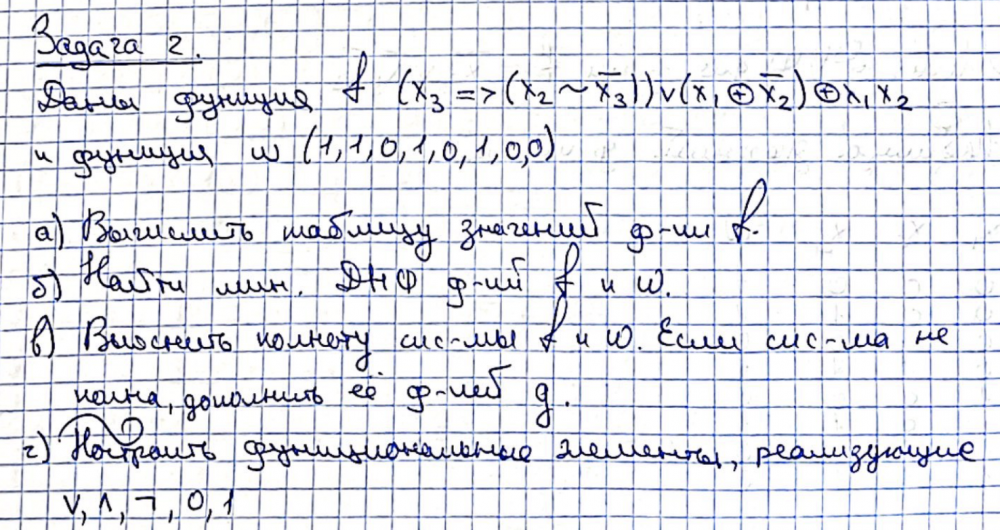 Задача 2.
Даны функция f (x₃ => (x₂ ~ x̄₃)) v (x₁ ⊕ x̄₂) ⊕ x₁ x₂
и функция w (1,1,0,1,0,1,0,0)
а) Вычислить таблицу значений ф-ии f.
б) Найти мин. ДНФ ф-ий f и w.
в) Выяснить полноту сис-мы f и w. Если сис-ма не
полна, дополнить её ф-ией g.
г) Построить функциональные элементы, реализующие
v, ∧, ¬, 0, 1